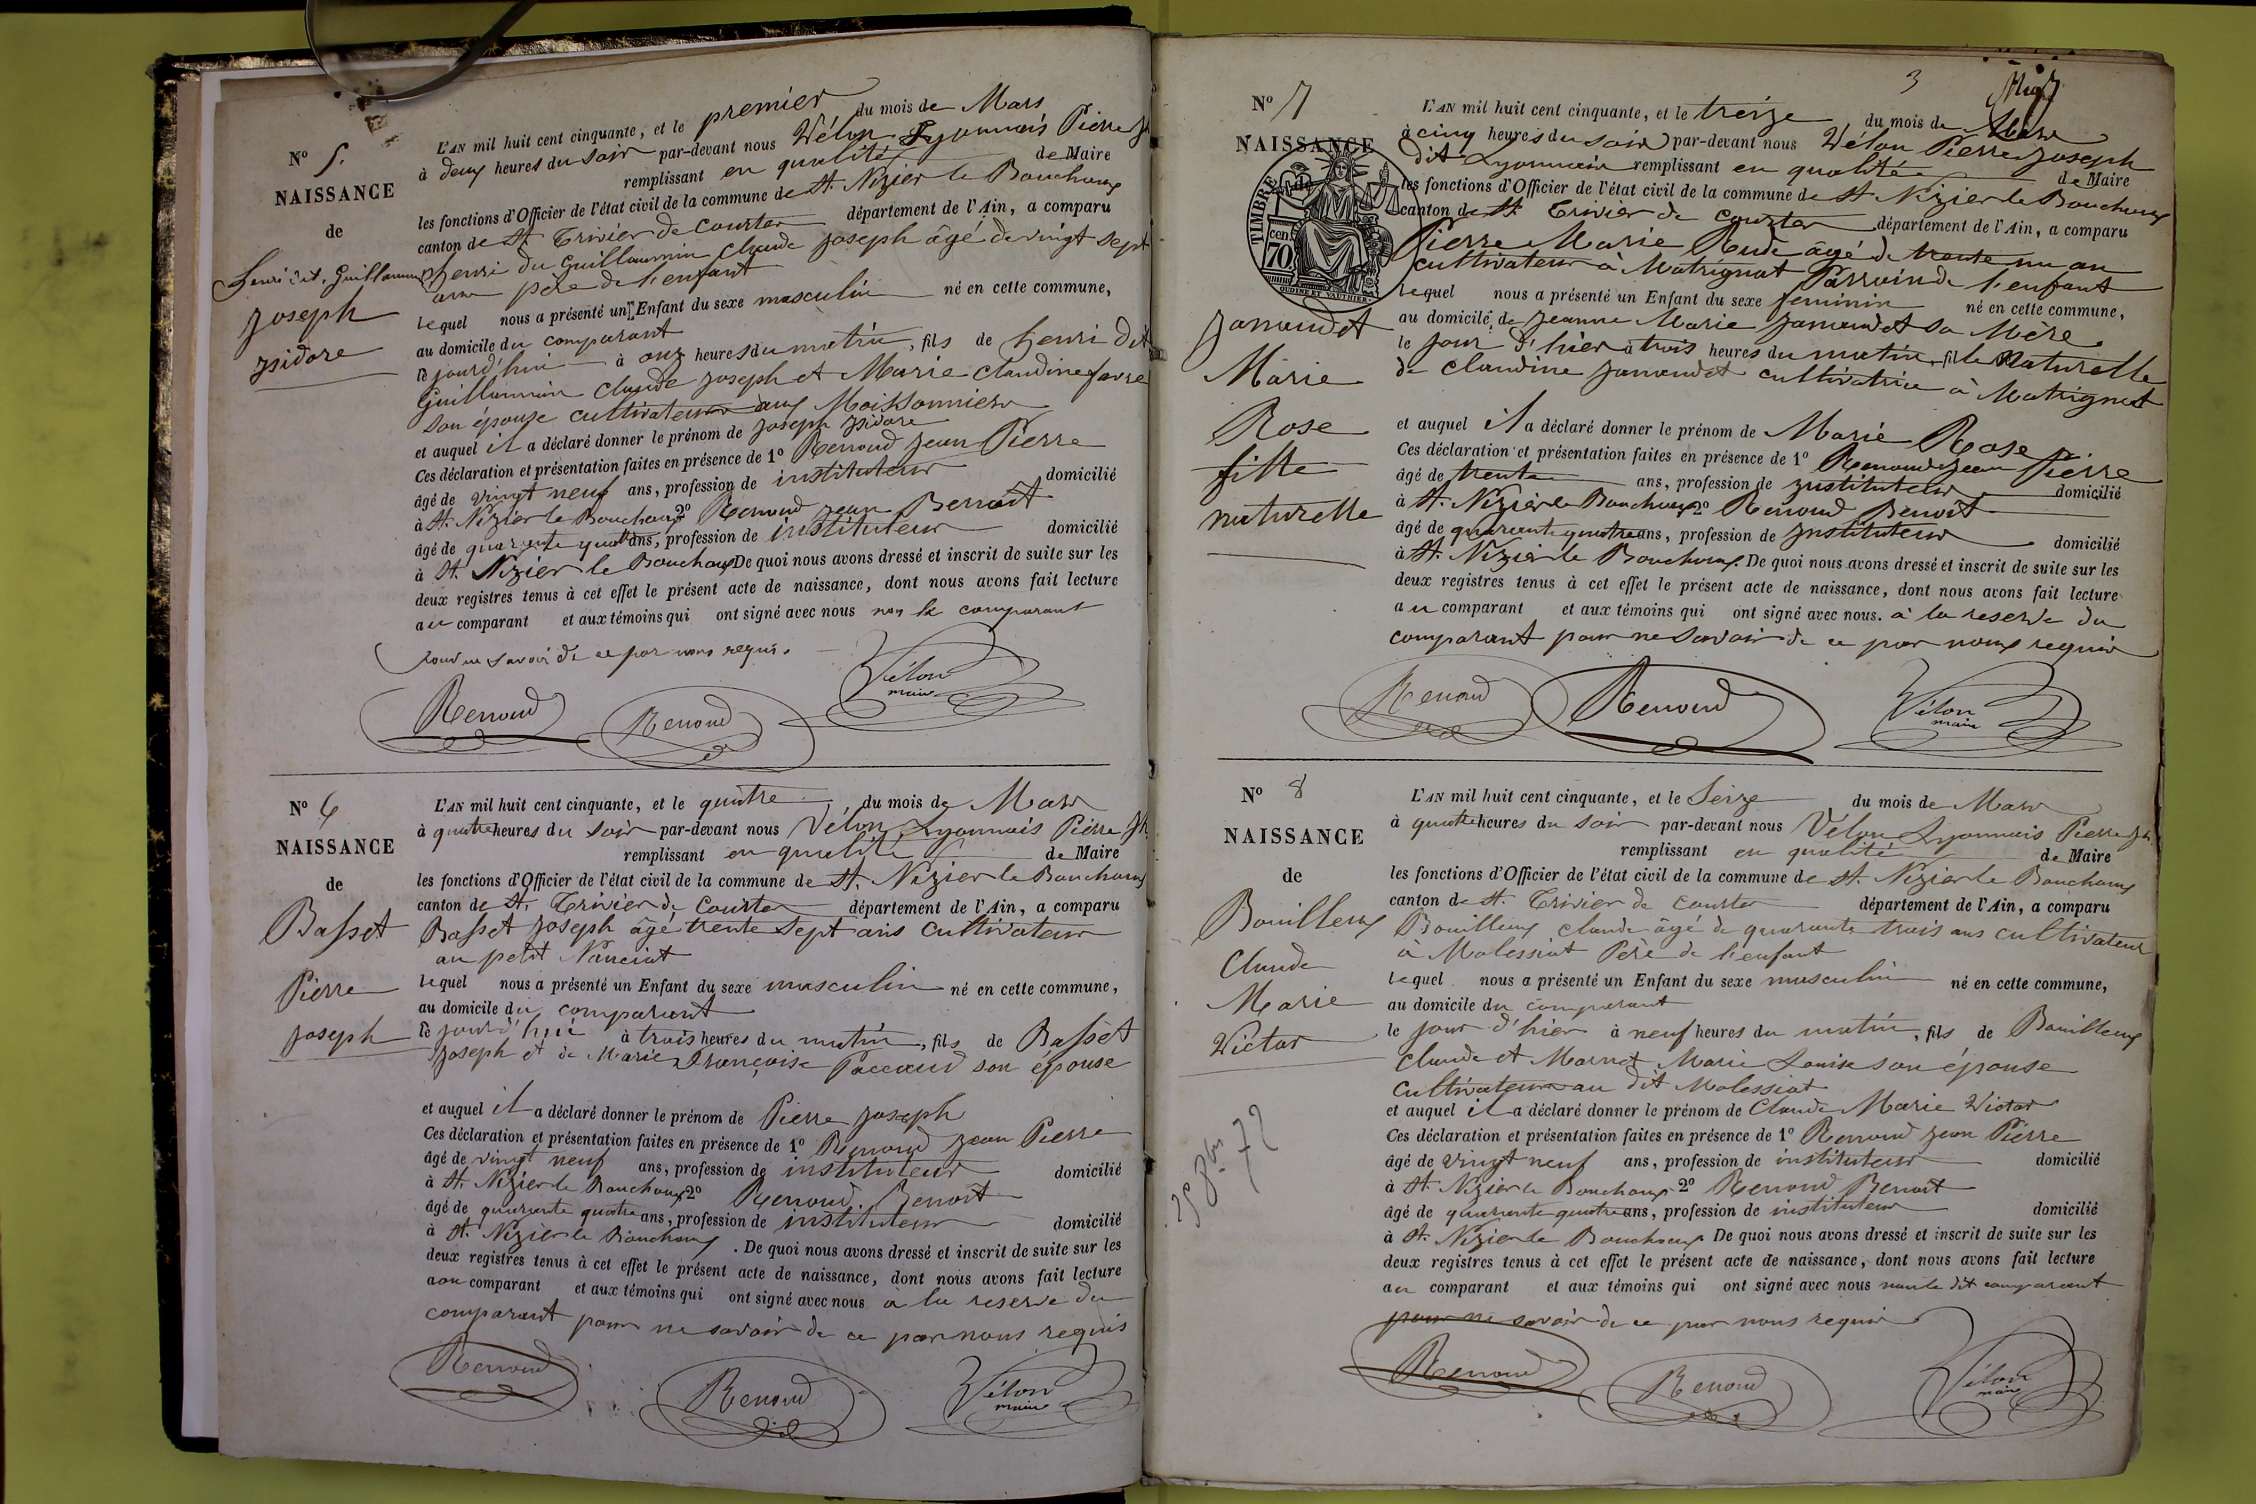 N° 5.
NAISSANCE
de
henri dit Guillaumin
Joseph
Isidore
L'AN mil huit cent cinquante, et le premier du mois de Mars
à deux heures du soir par-devant nous Vélon Lyonnais Pierre Jh
remplissant en qualité de Maire
les fonctions d'Officier de l'état civil de la commune de St. Nizier le Bouchoux
canton de St. Trivier de Courtes département de l'Ain, a comparu
henri du Guillaumin Claude Joseph âgé de vingt sept
ans père de l'enfant
lequel nous a présenté un Enfant du sexe masculin né en cette commune,
au domicile du comparant
le jourd'hui à onze heures du matin, fils de henri dit
Guillaumin Claude Joseph et Marie Claudine favre
son épouse cultivateurs aux Moissonniers
et auquel il a déclaré donner le prénom de Joseph Isidore
Ces déclaration et présentation faites en présence de 1° Renoud Jean Pierre
âgé de vingt neuf ans, profession de instituteur domicilié
à St. Nizier le Bouchoux 2° Renoud Jean Benoit
âgé de quarante quatre ans, profession de instituteur domicilié
à St. Nizier le Bouchoux De quoi nous avons dressé et inscrit de suite sur les
deux registres tenus à cet effet le présent acte de naissance, dont nous avons fait lecture
au comparant et aux témoins qui ont signé avec nous non le comparant
pour ne savoir de ce par nous requis.
Renoud Renoud Vélon
maire
N° 6
NAISSANCE
de
Basset
Pierre
Joseph
L'AN mil huit cent cinquante, et le quatre du mois de Mars
à quatre heures du soir par-devant nous Vélon Lyonnais Pierre Jh
remplissant en qualité de Maire
les fonctions d'Officier de l'état civil de la commune de St. Nizier le Bouchoux
canton de St. Trivier de Courtes département de l'Ain, a comparu
Basset Joseph âgé trente sept ans cultivateur
au petit Nanciat
lequel nous a présenté un Enfant du sexe masculin né en cette commune,
au domicile du comparant
le jourd'hui à trois heures du matin, fils de Basset
Joseph et de Marie Françoise Paccoud son épouse
et auquel il a déclaré donner le prénom de Pierre Joseph
Ces déclaration et présentation faites en présence de 1° Renoud Jean Pierre
âgé de vingt neuf ans, profession de instituteur domicilié
à St. Nizier le Bouchoux 2° Renoud Benoit
âgé de quarante quatre ans, profession de instituteur domicilié
à St. Nizier le Bouchoux. De quoi nous avons dressé et inscrit de suite sur les
deux registres tenus à cet effet le présent acte de naissance, dont nous avons fait lecture
au comparant et aux témoins qui ont signé avec nous à la reserve du
comparant pour ne savoir de ce par nous requis
Renoud Renoud Vélon
maire
3
N° 7
NAISSANCE
de
TIMBRE
70 cen
OUDINE ET VAUTHIER
Jamaudet
Marie
Rose
fille
naturelle
L'AN mil huit cent cinquante, et le treize du mois de Mars
à cinq heures du soir par-devant nous Vélon Pierre Joseph
dit Lyonnais remplissant en qualité de Maire
les fonctions d'Officier de l'état civil de la commune de St Nizier le Bouchoux
canton de St. Trivier de Courtes département de l'Ain, a comparu
Pierre Marie Rude âgé de trente un an
cultivateur à Matrignat Parrain de l'enfant
lequel nous a présenté un Enfant du sexe feminin né en cette commune,
au domicile de Jeanne Marie Jamaudet sa Mère
le jour d'hier à trois heures du matin, fille naturelle
de Claudine Jamaudet cultivatrice à Matrignat
et auquel il a déclaré donner le prénom de Marie Rose
Ces déclaration et présentation faites en présence de 1° Renoud Jean Pierre
âgé de trente ans, profession de instituteur domicilié
à St. Nizier le Bouchoux 2° Renoud Benoit
âgé de quarante quatre ans, profession de instituteur domicilié
à St. Nizier le Bouchoux. De quoi nous avons dressé et inscrit de suite sur les
deux registres tenus à cet effet le présent acte de naissance, dont nous avons fait lecture
au comparant et aux témoins qui ont signé avec nous. à la reserve du
comparant pour ne savoir de ce par nous requis
Renoud Renoud Vélon
maire
N° 8
NAISSANCE
de
Bouilloux
Claude
Marie
Victor
25 8bre 72
L'AN mil huit cent cinquante, et le Seize du mois de Mars
à quatre heures du soir par-devant nous Vélon Lyonnais Pierre Jh
remplissant en qualité de Maire
les fonctions d'Officier de l'état civil de la commune de St. Nizier le Bouchoux
canton de St. Trivier de Courtes département de l'Ain, a comparu
Bouilloux Claude âgé de quarante trois ans cultivateur
à Malessiat Père de l'enfant
lequel nous a présenté un Enfant du sexe masculin né en cette commune,
au domicile du comparant
le jour d'hier à neuf heures du matin, fils de Bouilloux
Claude et Marnet Marie Louise son épouse
cultivateurs au dit Malessiat
et auquel il a déclaré donner le prénom de Claude Marie Victor
Ces déclaration et présentation faites en présence de 1° Renoud Jean Pierre
âgé de vingt neuf ans, profession de instituteur domicilié
à St. Nizier le Bouchoux 2° Renoud Benoit
âgé de quarante quatre ans, profession de instituteur domicilié
à St. Nizier le Bouchoux De quoi nous avons dressé et inscrit de suite sur les
deux registres tenus à cet effet le présent acte de naissance, dont nous avons fait lecture
au comparant et aux témoins qui ont signé avec nous non le dit comparant
pour ne savoir de ce par nous requis
Renoud Renoud Vélon
maire